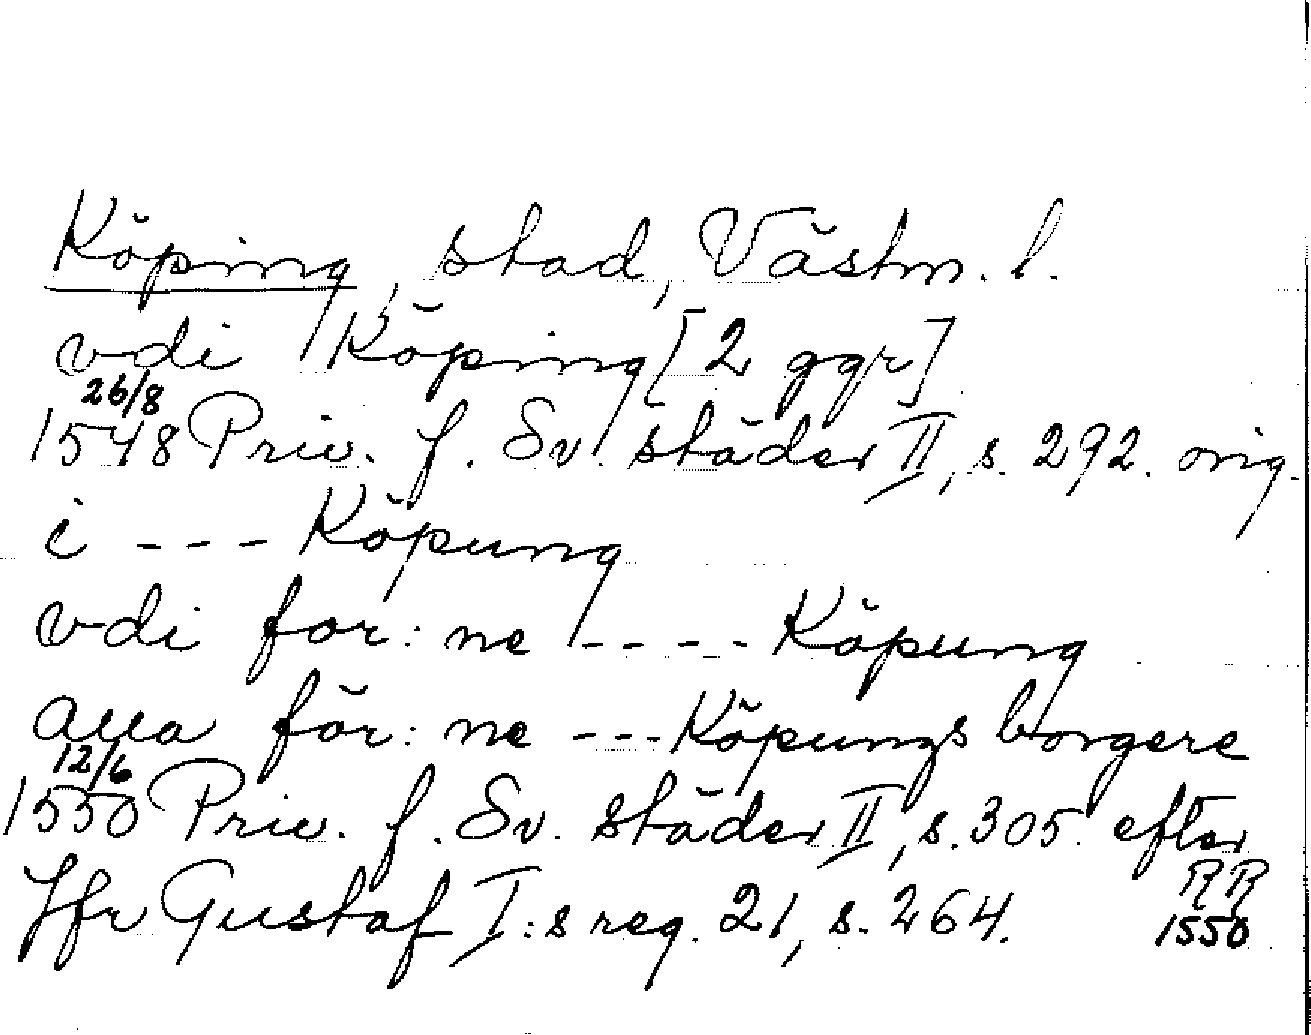 Köping, stad, Västm. l.
vdi Köping [2 ggr]
26/8
1548 Priv. f. Sv. städer II, s. 292. orig.
i --- Köpung
vdi for:ne ---- Köpung
alla för:ne --- Köpungs borgere
12/6
1550 Priv. f. Sv. städer II, s. 305. efter
RR
Jfr Gustaf I:s reg. 21, s. 264. 1550